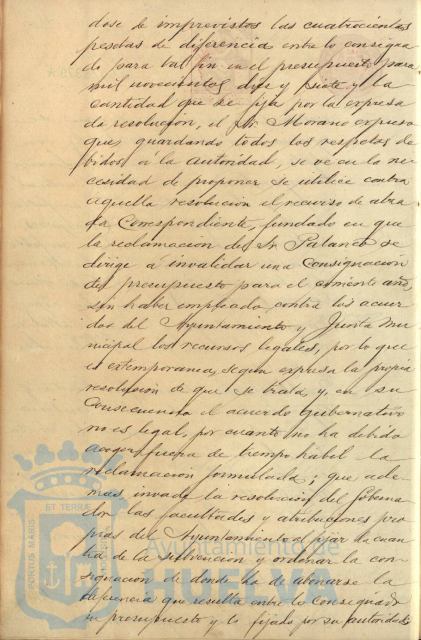 dose de imprevistos las cuatrocientas
pesetas de diferencia entre lo consigna
do para tal fin en el presupuesto para
mil novecientos diez y siete y la
cantidad que se fija por la expresa
da resolucion, el Sr. Morano expuso
que, guardando todos los respetos de
bidos á la autoridad, se ve en la ne
cesidad de proponer se utilice contra
aquella resolucion el recurso de alza
da correspondiente, fundado en que
la reclamacion del Sr. Palanco se
dirige á invalidar una consignacion
del presupuesto para el corriente año,
sin haber empleado contra los acuer
dos del Ayuntamiento y Junta mu
nicipal los recursos legales, por lo que
es extemporanea, segun expresa la propia
resolucion de que se trata, y, en su
consecuencia el acuerdo gubernativo
no es legal, por cuanto no ha debido
acoger fuera de tiempo habil la
reclamacion formulada; que ade
mas, invade la resolucion del Goberna
dor las facultades y atribuciones pro
pias del Ayuntamiento al fijar la cuan
tia de la subvencion y ordenar la con
signacion de donde ha de abonarse la
diferencia que resulta entre lo consignado
en presupuesto y lo fijado por su autoridad
PORTUS MARIS ET TERRAE
Ayuntamiento de
HUELVA